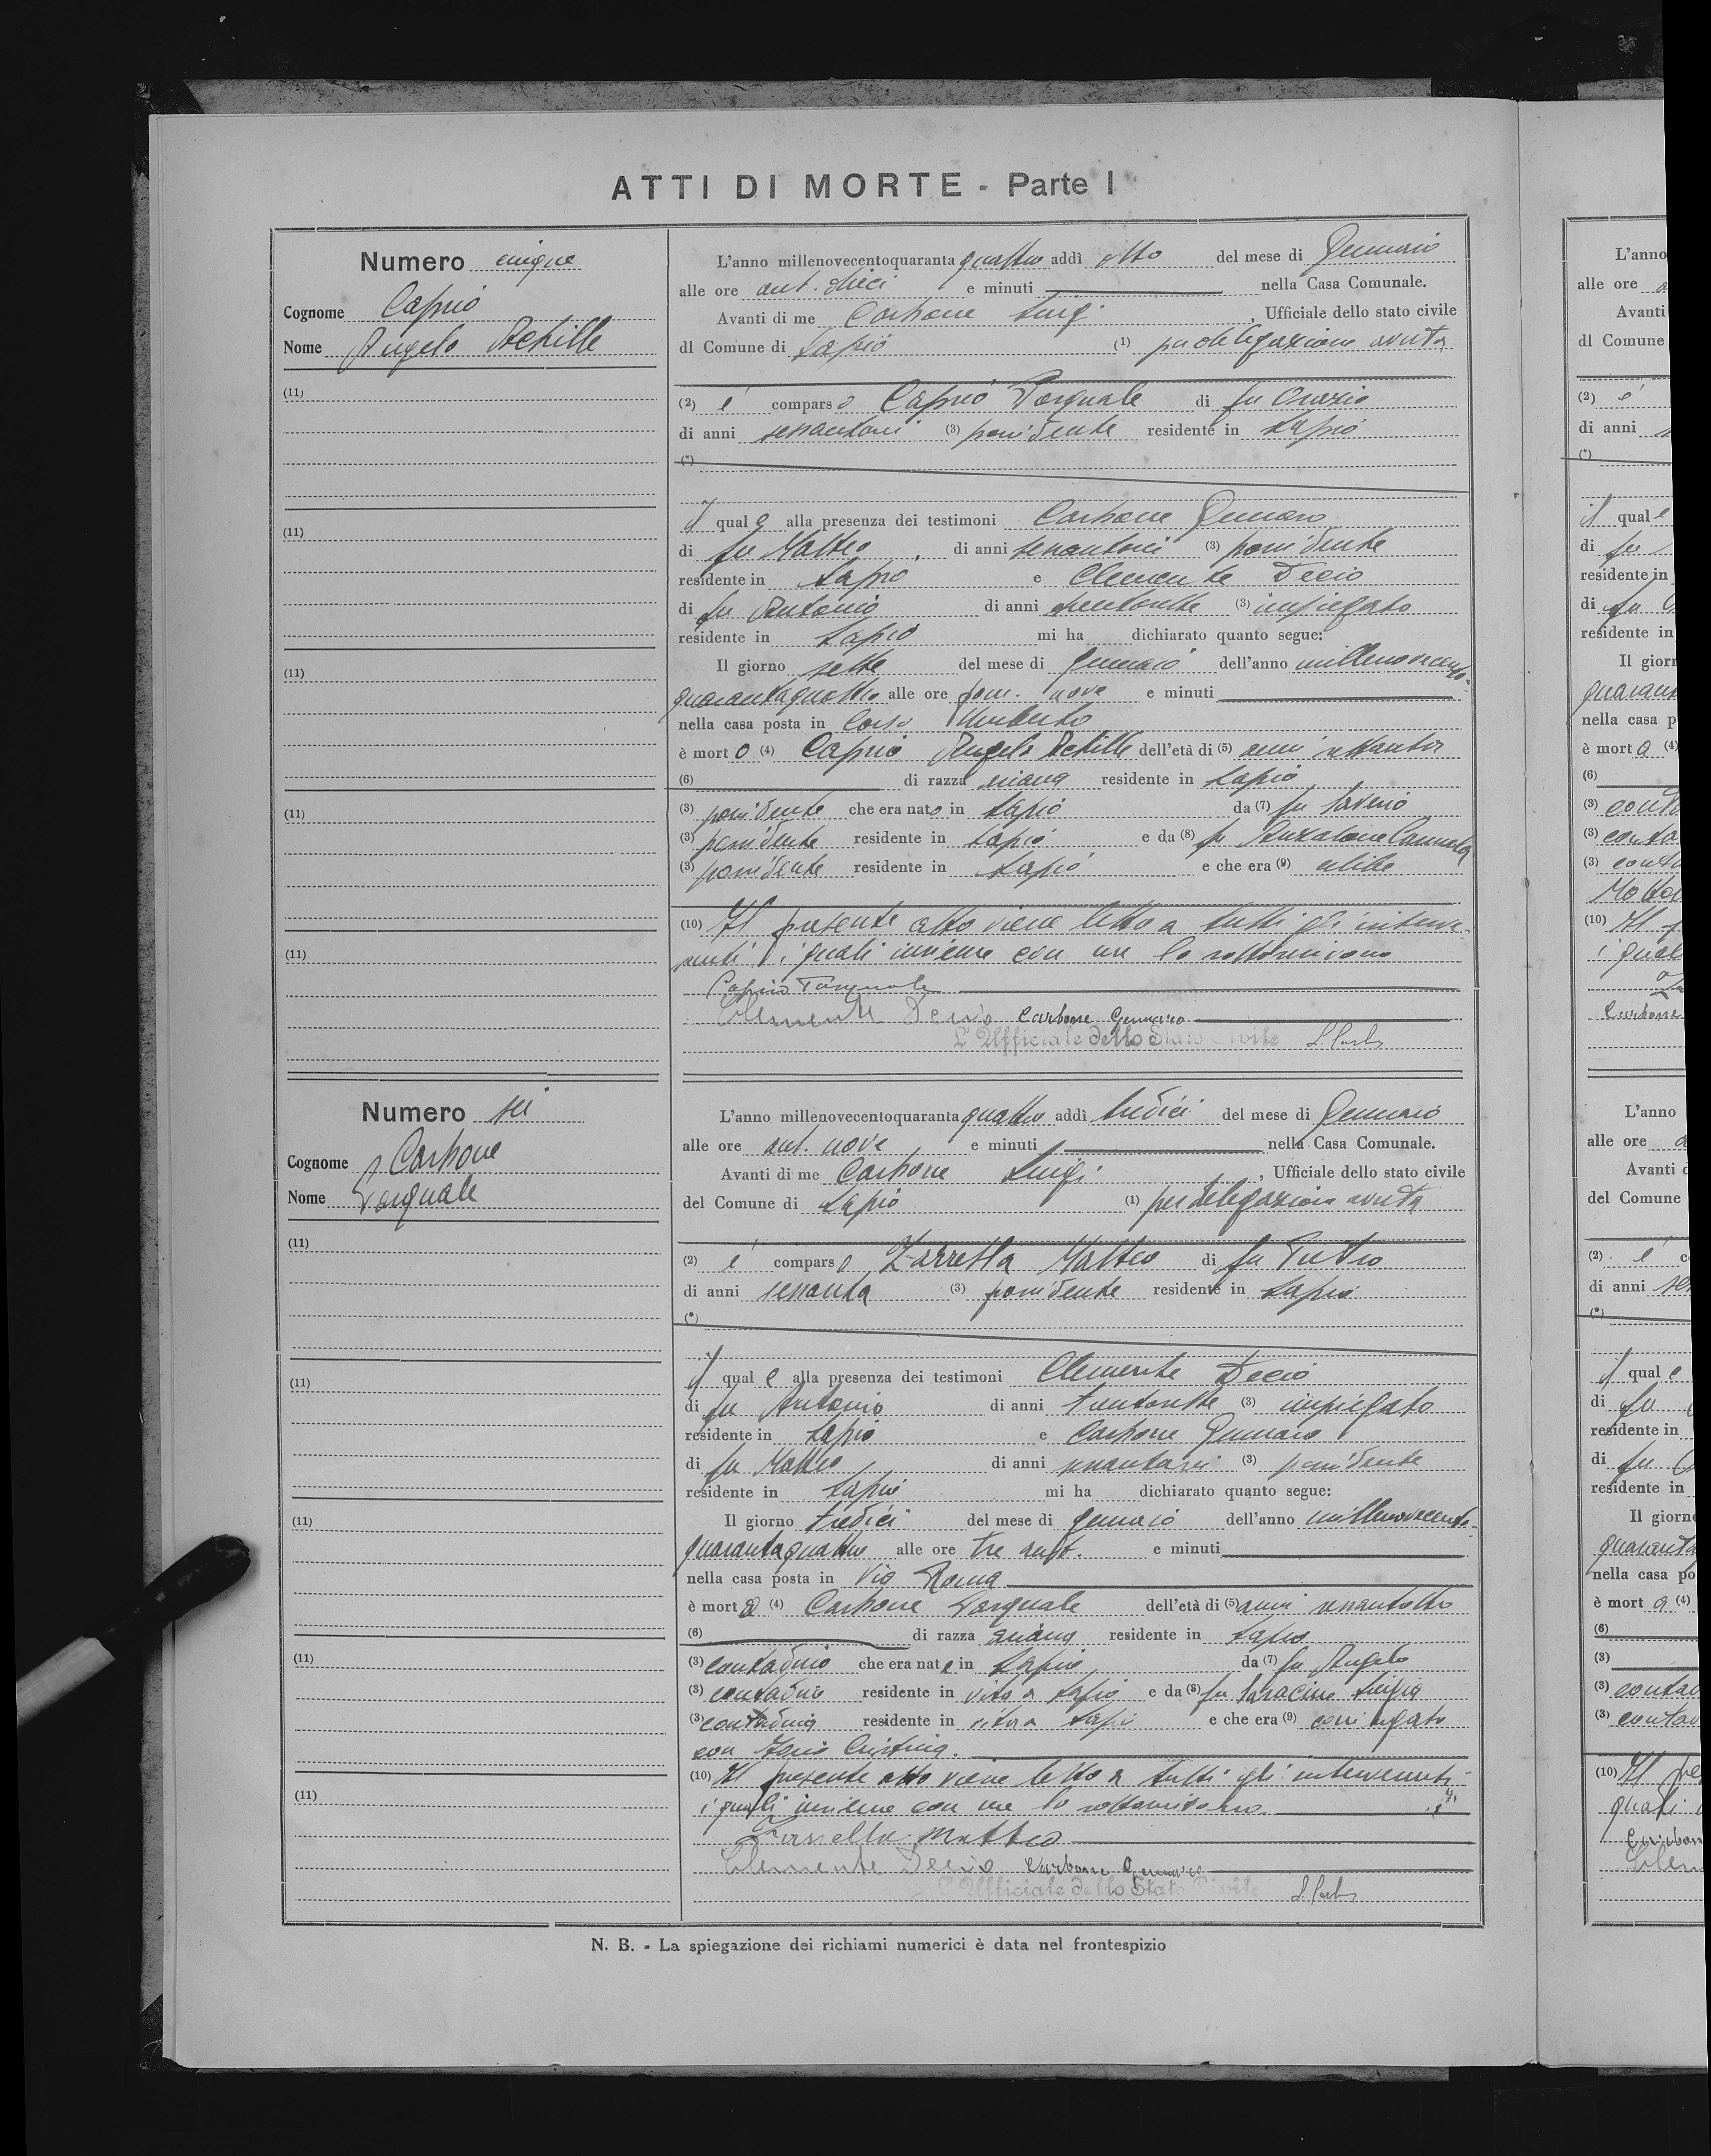 ATTI DI MORTE - Parte I
Numero cinque
Cognome Caprio
Nome Angelo Achille
(11)
(11)
(11)
(11)
(11)
L'anno millenovecentoquaranta quattro addì otto del mese di Gennaio
alle ore ant. dieci e minuti nella Casa Comunale.
Avanti di me Carbone Luigi, Ufficiale dello stato civile
dl Comune di Lapio (1) per delegazione avuta
(2) è comparso Caprio Pasquale di fu Orazio
di anni (3) possidente residente in Lapio
(*)
il quale alla presenza dei testimoni Carbone Gennaro
di fu Matteo di anni (3) possidente
residente in Lapio e Clemente Decio
di fu Antonio di anni trentasette (3) impiegato
residente in Lapio mi ha dichiarato quanto segue:
Il giorno sette del mese di Gennaio dell'anno millenovecento
quarantaquattro alle ore pom. nove e minuti
nella casa posta in Corso Umberto
è morto (4) Caprio Angelo Achille dell'età di (5) anni
(6) di razza ariana residente in Lapio
(3) possidente che era nato in Lapio da (7) fu Saverio
(3) possidente residente in Lapio e da (8) fu Anzalone Carmela
(3) possidente residente in Lapio e che era (9) celibe
(10) Il presente atto viene letto a tutti gli interve-
nuti i quali insieme con me lo sottoscrivono
Caprio Pasquale
Clemente Decio Carbone Gennaro
L'Ufficiale dello Stato Civile L. Carbone
Numero sei
Cognome Carbone
Nome Pasquale
(11)
(11)
(11)
(11)
(11)
L'anno millenovecentoquaranta quattro addì tredici del mese di Gennaio
alle ore ant. nove e minuti nella Casa Comunale.
Avanti di me Carbone Luigi, Ufficiale dello stato civile
del Comune di Lapio (1) per delegazione avuta
(2) è comparso Zarrella Matteo di fu Pietro
di anni sessanta (3) possidente residente in Lapio
(*)
il quale alla presenza dei testimoni Clemente Decio
di fu Antonio di anni trentasette (3) impiegato
residente in Lapio e Carbone Gennaro
di fu Matteo di anni (3) possidente
residente in Lapio mi ha dichiarato quanto segue:
Il giorno tredici del mese di gennaio dell'anno millenovecento
quarantaquattro alle ore tre ant. e minuti
nella casa posta in Via Roma
è morto (4) Carbone Pasquale dell'età di (5) anni sessantotto
(6) di razza ariana residente in Lapio
(3) contadino che era nato in Lapio da (7) fu Angelo
(3) contadino residente in vita a Lapio e da (8) fu Saracino Luigia
(3) contadina residente in vita a Lapio e che era (9) coniugato
con Cristina.
(10) Il presente atto viene letto a tutti gli intervenuti
i quali insieme con me lo sottoscrivono
Zarrella Matteo
Clemente Decio Carbone Gennaro
L'Ufficiale dello Stato Civile L. Carbone
N. B. - La spiegazione dei richiami numerici è data nel frontespizio